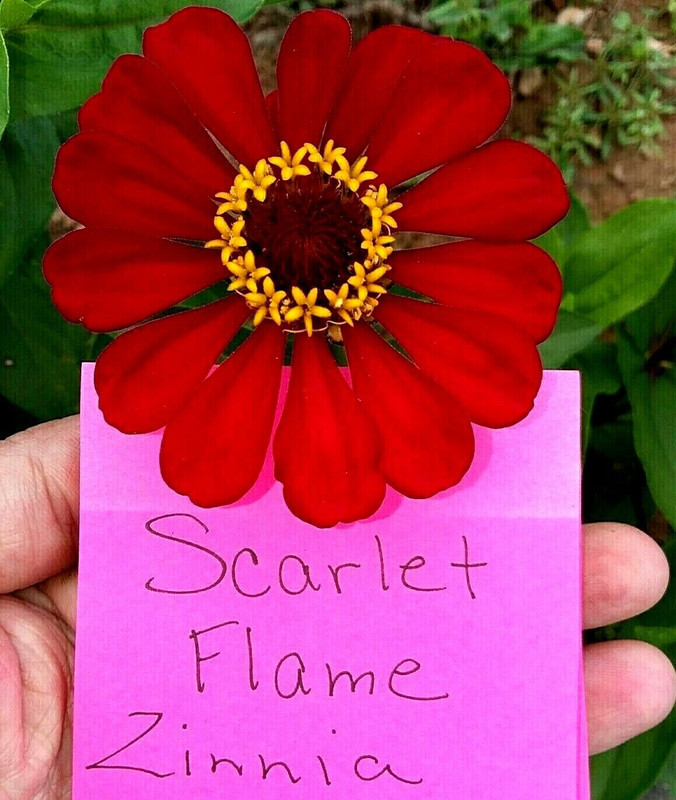 Scarlet
Flame
Zinnia